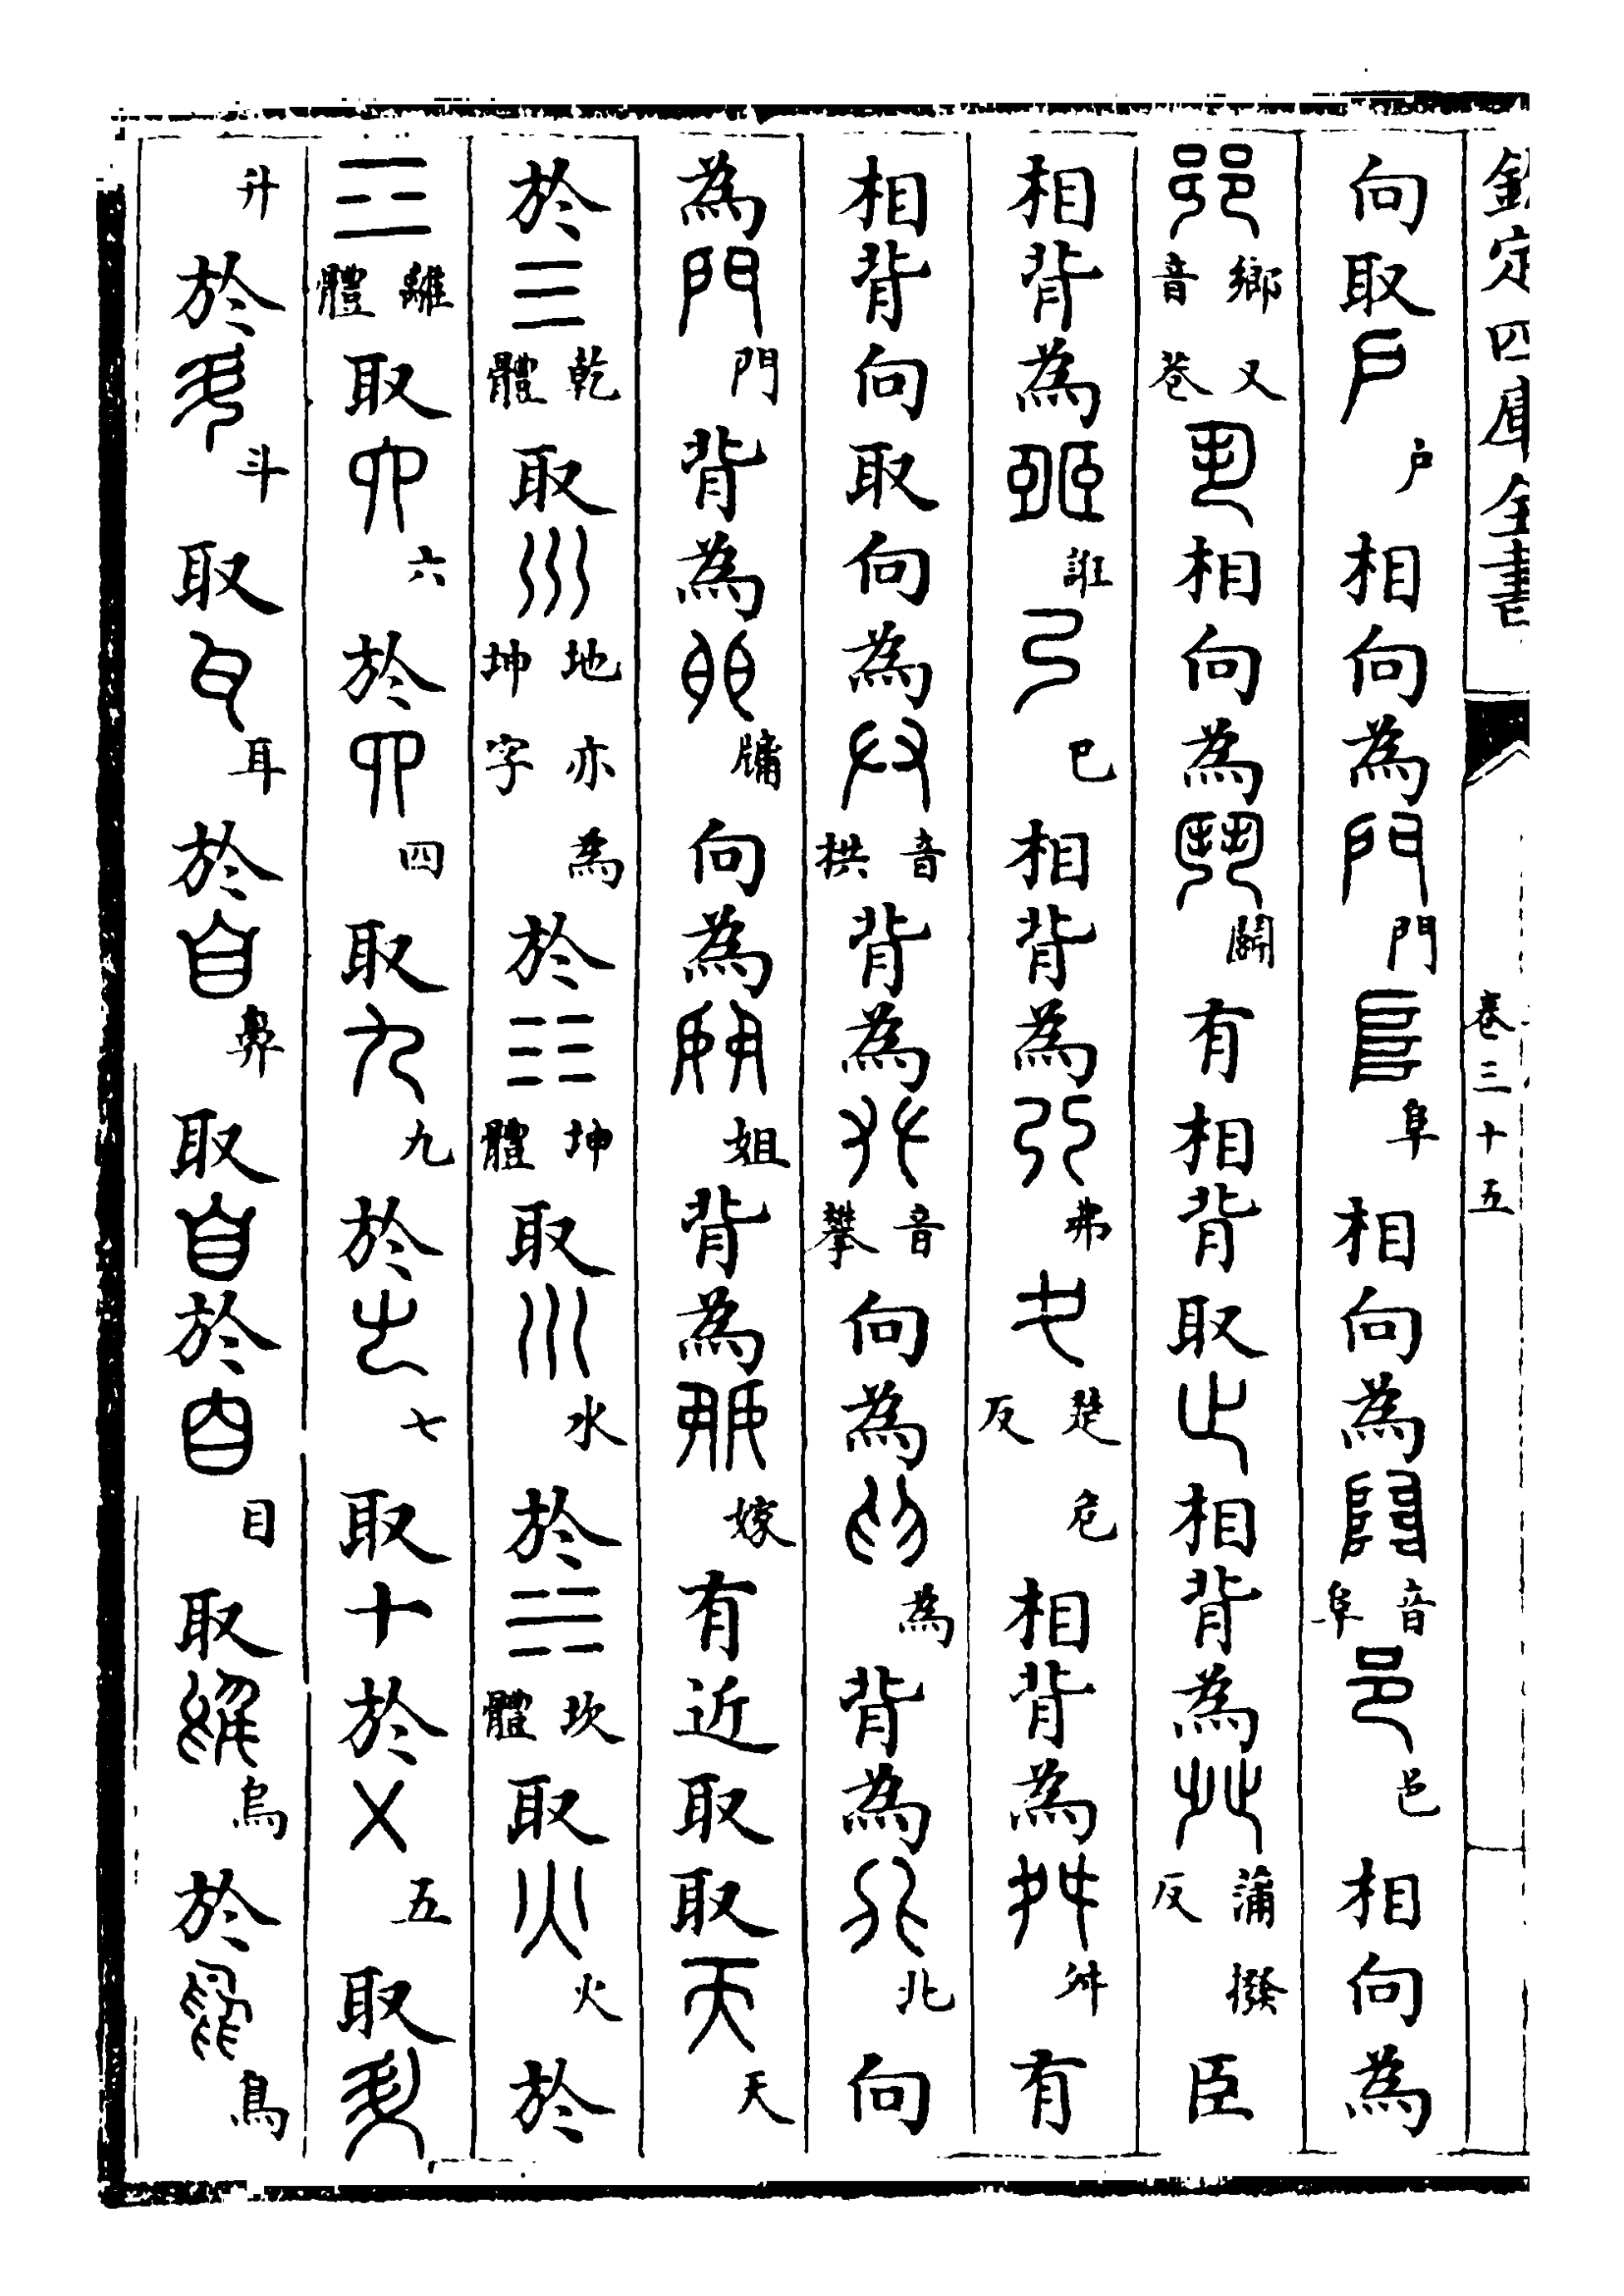 欽定四庫全書 卷三十五
向取戶户相向為門門𨸏阜相向為𨺅音阜邑邑相向為
𨛜鄉又音巷丮相向為鬥鬭有相背取止相背為癶蒲撥反臣
相背為𦣩誑己巳相背為誑弗楚危反相背為舛舛有
相背向取向為𠬞音拱背為𠬜音攀向為為背為北向
為門門背為牗向為姐背為嫁有近取取天天
於☰乾體取巛地亦為坤字於☷坤體取水水於☵坎體取火火於
☲離體取六六於四四取九九於七七取十於㐅五取升
升於斗斗取耳耳於自鼻取自於目目取烏烏於鳥鳥